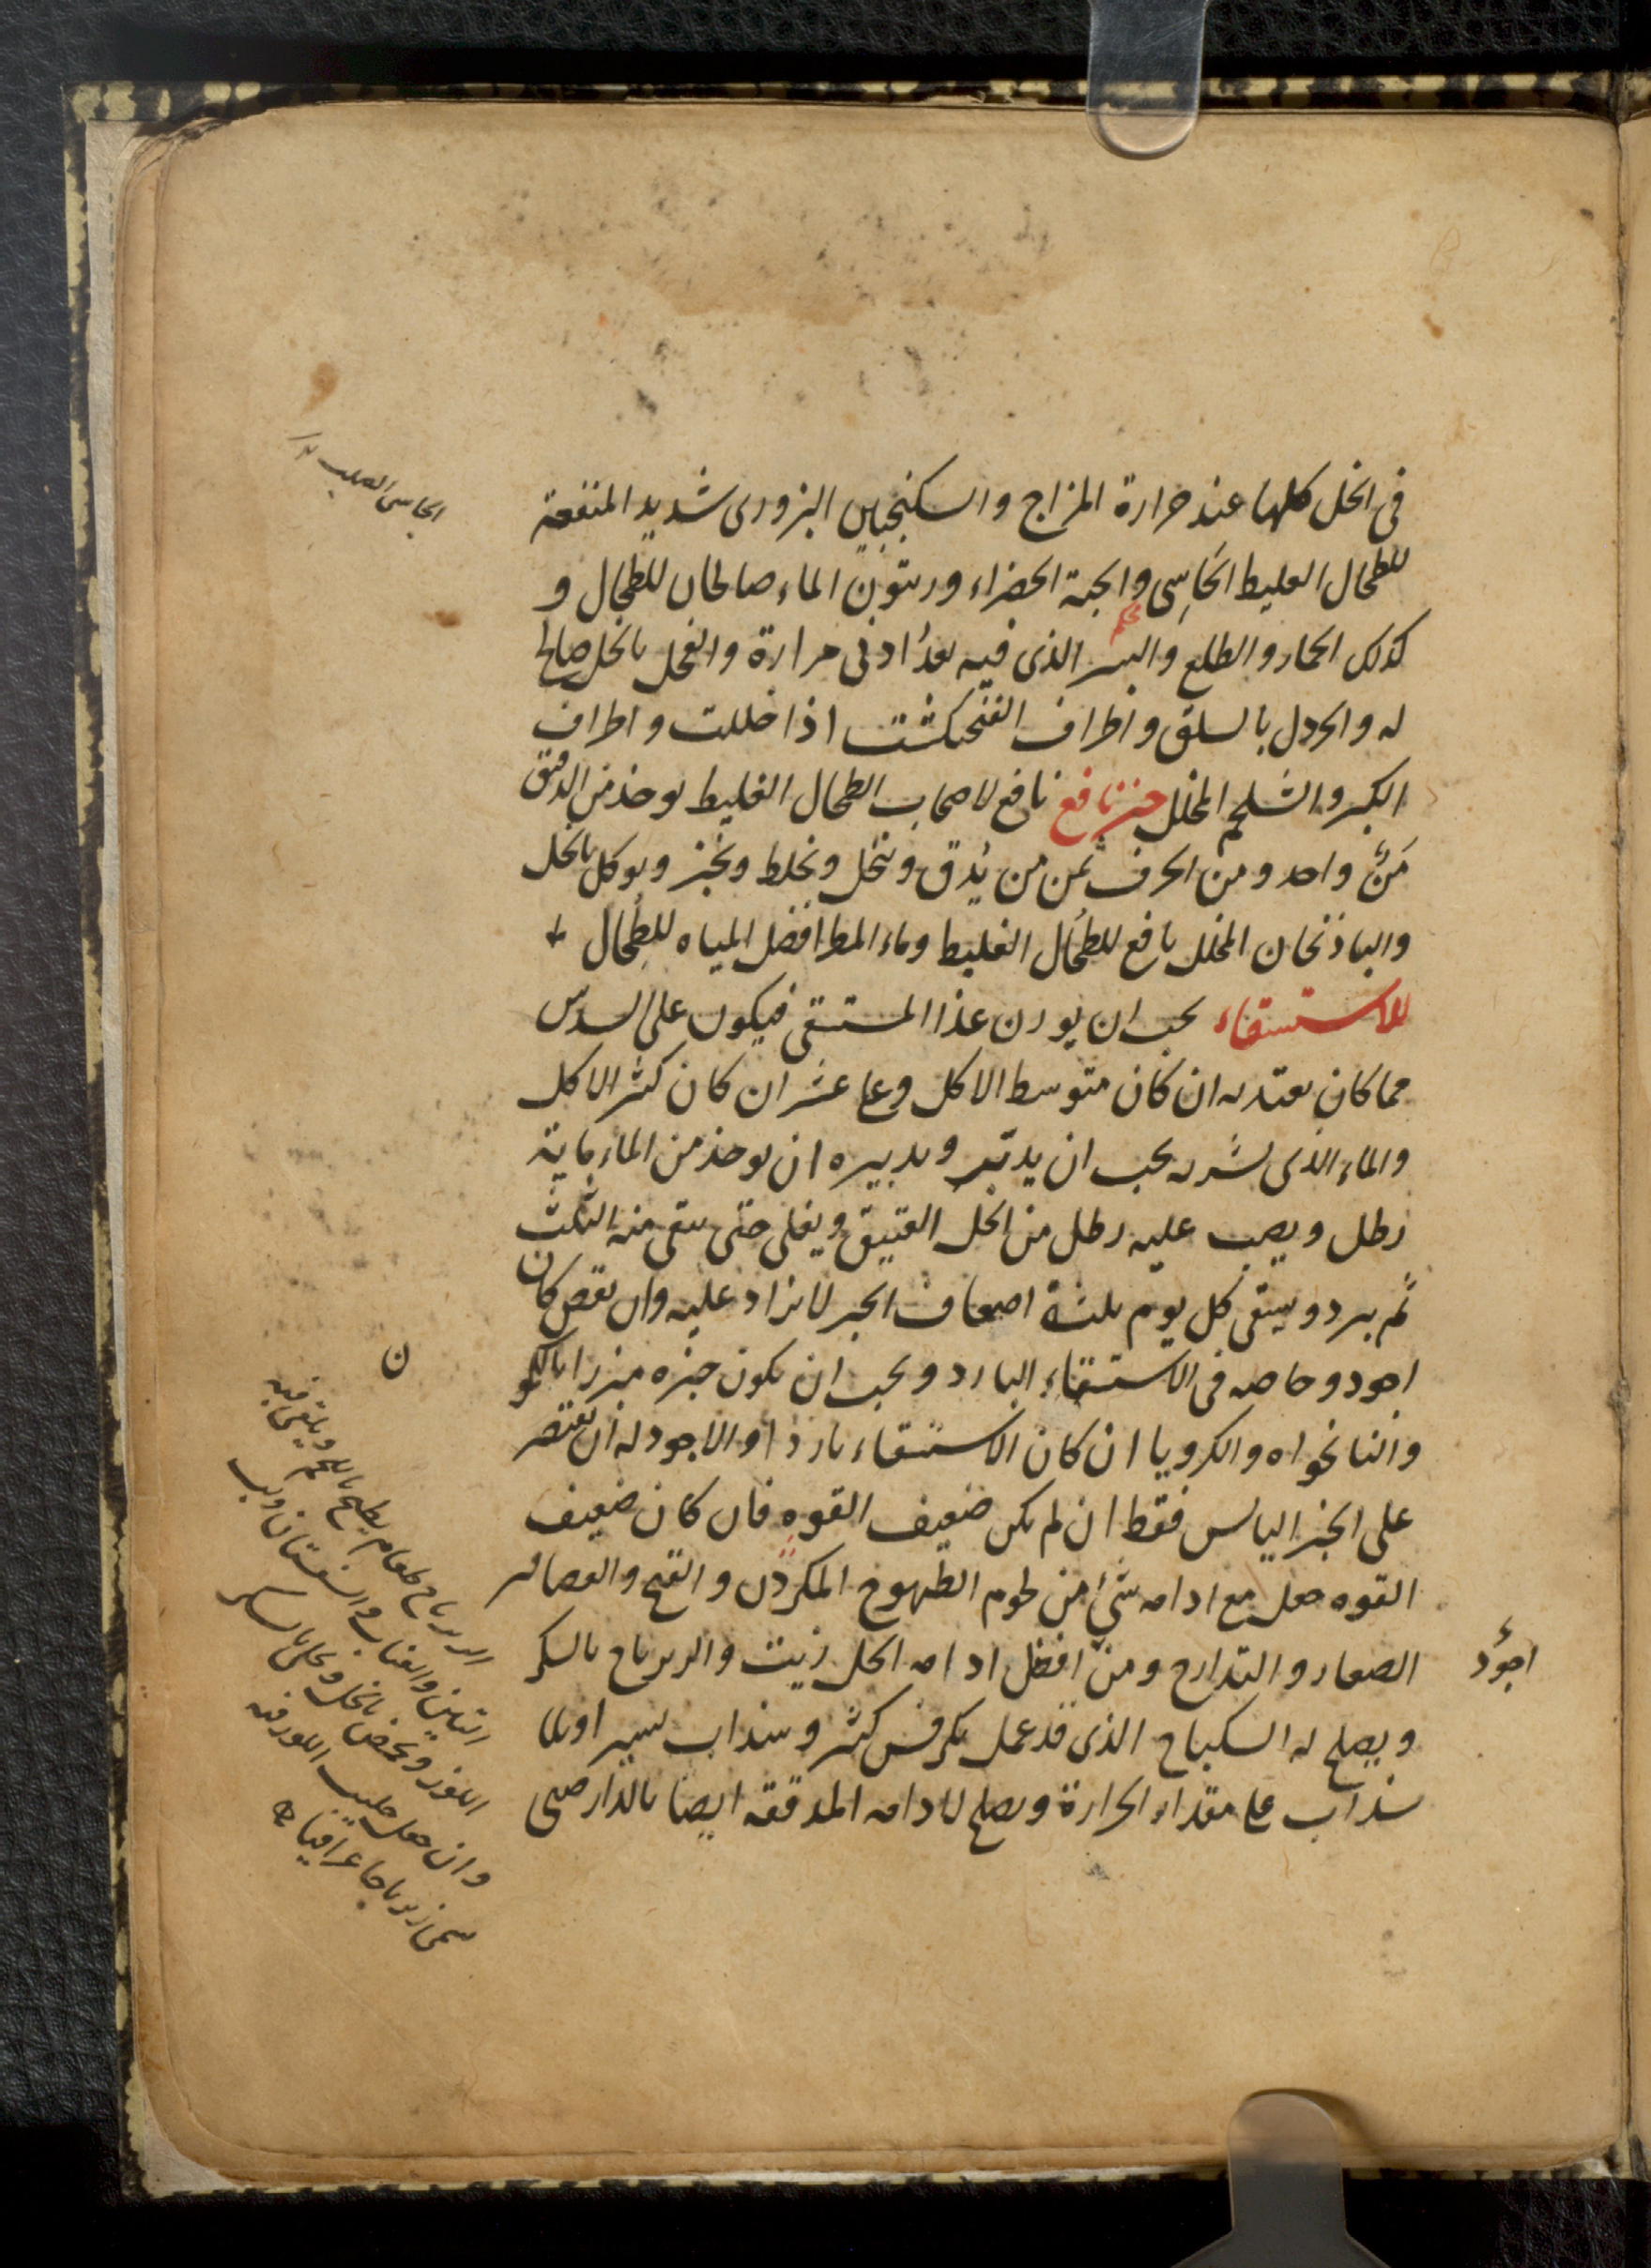 في الخل كلها عند حرارة المزاج والسكنجبين البزورى شديد المنفعة
للطحال الغليظ الجاسى والحبة الخضراء وزيتون الماء صالحان للطحال و
كذلك الجمار والطلع والبسر الذى فيه بعدُ ادنى مرارة والفجل بالخل صالح
له والخردل بالسلق واطراف الفنجنكشت اذا خللت واطراف
الكبر والشلجم المخلل خبز نافع نافع لاصحاب الطحال الغليظ يوخذ من الدقيق
مَنٌّ واحد ومن الحرف ثمن من يُدق وينخل ويخلط ويخبز ويوكل بالخل
والباذنجان المخلل نافع للطُحال الغليظ وماء المطر افضل المياه للطُحال
للاستسقاء يجب ان يوزن غذا المستسقى فيكون على السدس
مما كان يعتد به ان كان متوسط الاكل وعلى عشر ان كان كثير الاكل
والماء الذى يشربه يجب ان يدبّر وتدبيره ان يوخذ من الماء ماية
رطل ويصب عليه رطل من الخل العتيق ويغلى حتى يبقى منه الثلث
ثم يبرد ويسقى كل يوم ثلثة اضعاف الخبز لا يزاد عليه وان نقص كان
اجود وخاصه فى الاستسقاء البارد ويجب ان يكون خبزه مبزرا بالكمو
والنانخواه والكرويا ان كان الاستسقاء باردا والاجود له ان يقتصر
على الخبز اليابس فقط ان لم يكن ضعيف القوه فان كان ضعيف
القوه جعل مع ادامه شئ من لحوم الطيهوج المكردن والقبج والعصافير
الصغار والتدارج ومن افضل ادامه الخل زيت والزيرباج بالسكر
ويصلح له السكباج الذى قد عمل بكرفس كثير وسذاب يسير او بلا
سذاب على مقدار الحرارة ويصلح لادامه المدققه ايضا بالدارصينى
الجاسى الصلب
اجوَد
ن
الزيرباج طعام يطبخ باللحم ويلقى فيه
التين والعناب والفستان ولب
اللوز ويحمض بالخل ويحلى بالسكر
وان جعل حليب اللوز فيه
سمى زيرباجا عراقيا